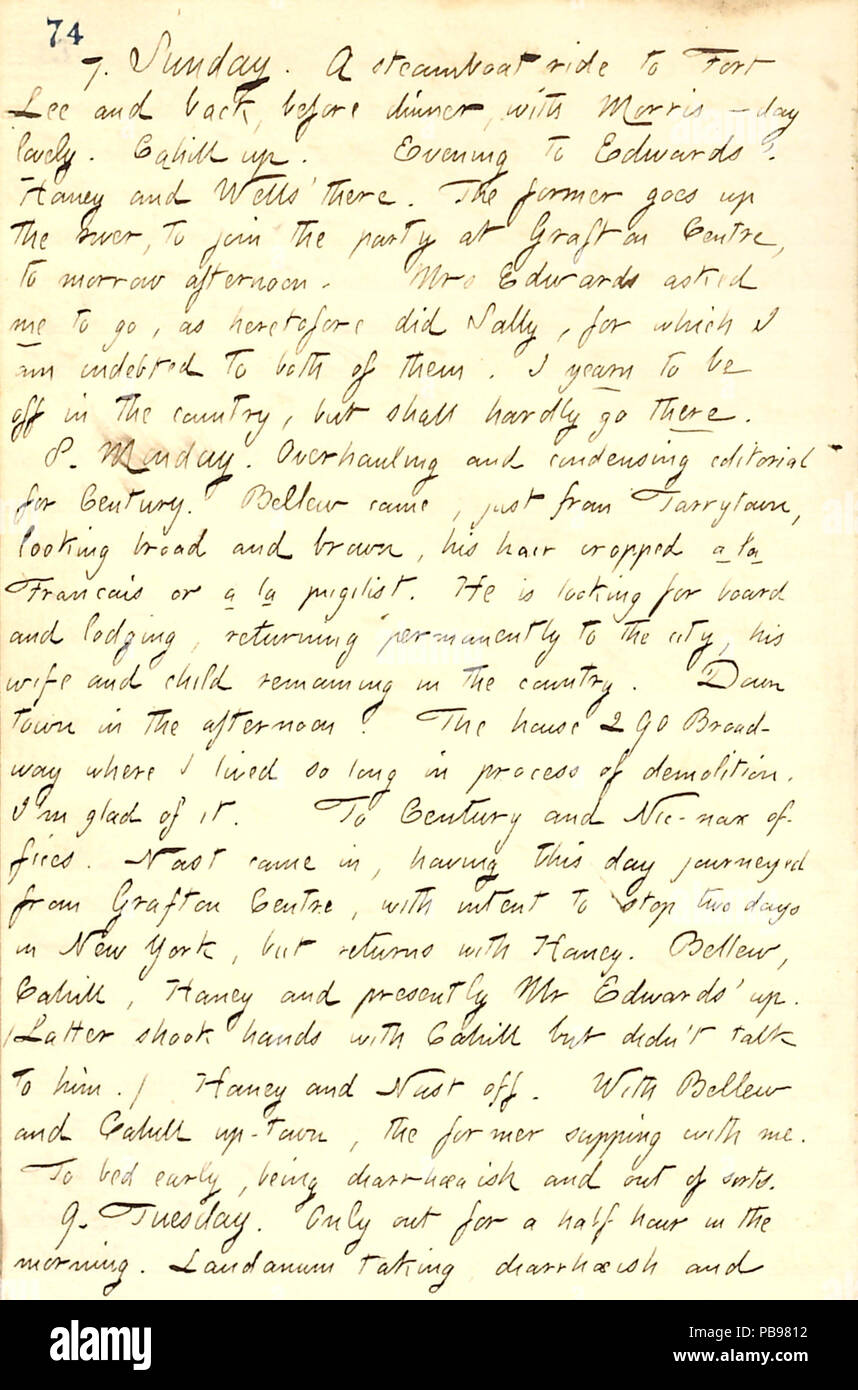 74
7. Sunday. A steamboat ride to Fort
Lee and back, before dinner, with Morris — day
lovely. Cahill up. Evening to Edwards'.
Haney and Wells' there. The former goes up
the river, to join the party at Grafton Centre,
to morrow afternoon. Mrs Edwards asked
me to go, as heretofore did Sally, for which I
am indebted to both of them. I yearn to be
off in the country, but shall hardly go there.
8. Monday. Overhauling and condensing editorial
for Century. Bellew came, just from Tarrytown,
looking broad and brown, his hair cropped a la
Francais or a la pugilist. He is looking for board
and lodging, returning permanently to the city, his
wife and child remaining in the country. Down
town in the afternoon. The house 290 Broad-
way where I lived so long in process of demolition.
I'm glad of it. To Century and Nic-nax of-
fices. Nast came in, having this day journeyed
from Grafton Centre, with intent to stop two days
in New York, but returns with Haney. Bellew,
Cahill, Haney and presently Mr Edwards' up.
(Latter shook hands with Cahill but didn't talk
to him.) Haney and Nast off. With Bellew
and Cahill up-town, the former supping with me.
To bed early, being diarrhœaish and out of sorts.
9. Tuesday. Only out for a half hour in the
morning. Laudanum taking, diarrhœish and
alamy
Image ID: PB9812
www.alamy.com